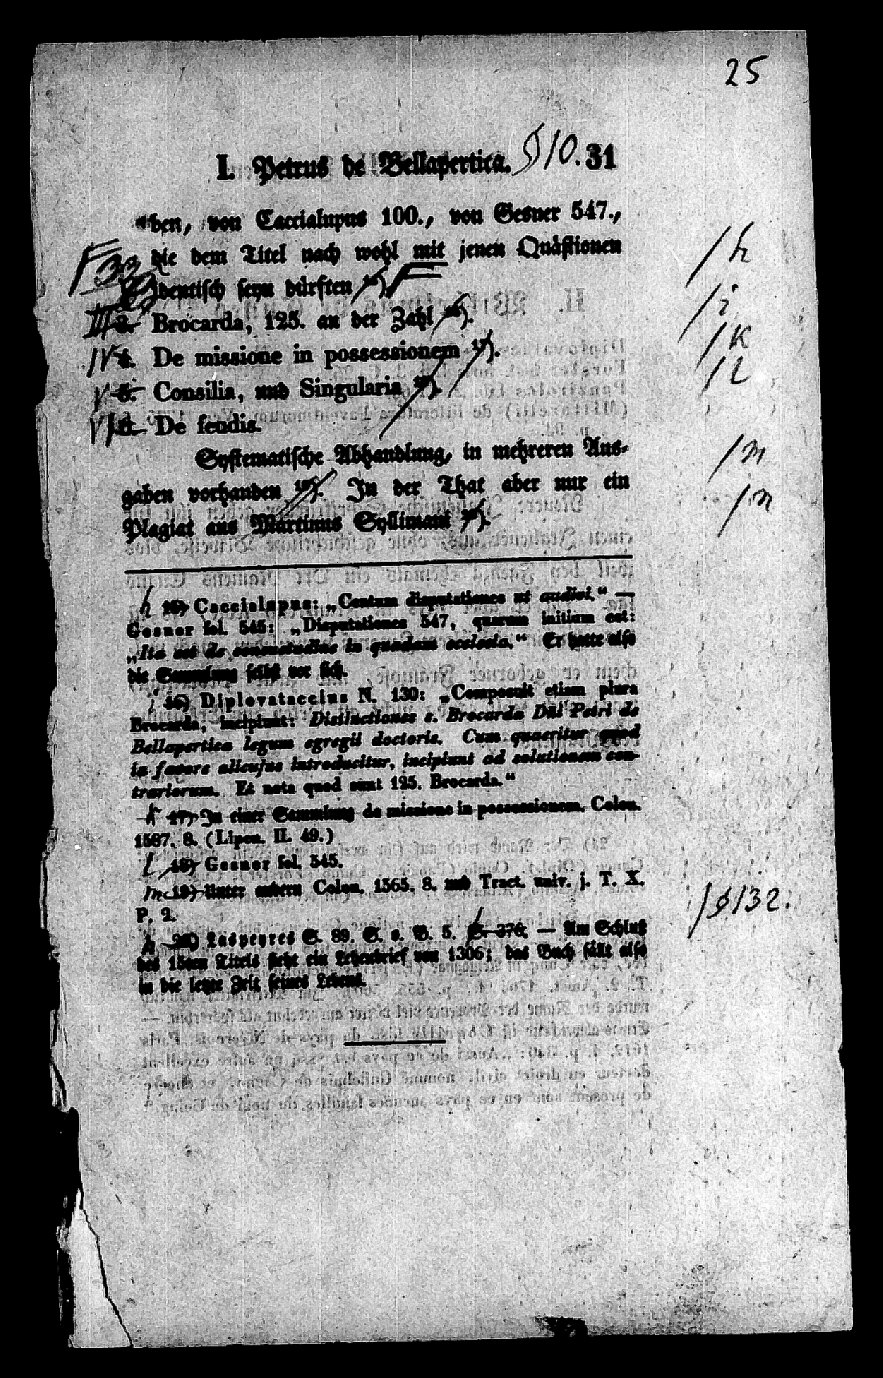 25
I. Petrus de Bellapertica. § 10. 31
ben, von Caccialupus 100., von Gesner 547.,
die dem Titel nach wohl mit jenen Quästionen
identisch seyn dürften
III 3. Brocarda, 125. an der Zahl 16).
IV 4. De missione in possessionem 17).
V 5. Consilia, und Singularia 18).
VI 6. De feudis.
Systematische Abhandlung, in mehreren Aus-
gaben vorhanden 19). In der That aber nur ein
Plagiat aus Martinus Syllimani 20).
/h
/i
/k
/l
/m
/n
h 15) Caccialupus: „Centum disputationes ut audivi.“ —
Gesner fol. 545: „Disputationes 547, quarum initium est:
„Ita est de consuetudine in quadam ecclesia.“ Er hatte also
die Sammlung selbst vor sich.
i 16) Diplovataccius N. 130: „Composuit etiam plura
Brocarda, incipiunt: Distinctiones s. Brocarda Dni Petri de
Bellapertica legum egregii doctoris. Cum quaeritur quod
in favore alicujus introducitur, incipiunt ad solutionem con-
trariorum. Et nota quod sunt 125. Brocarda.“
k 17) In einer Sammlung de missione in possessionem. Colon.
1587. 8. (Lipen. II. 49.)
l 18) Gesner fol. 545.
m 19) Unter andern Colon. 1565. 8. und Tract. univ. j. T. X.
P. 2.
n 20) Laspeyres S. 89. S. o. B. 5. S. 376. — Am Schluß
des 15ten Titels steht ein Lehenbrief von 1306; das Buch fällt also
in die letzte Zeit seines Lebens.
/§ 132.